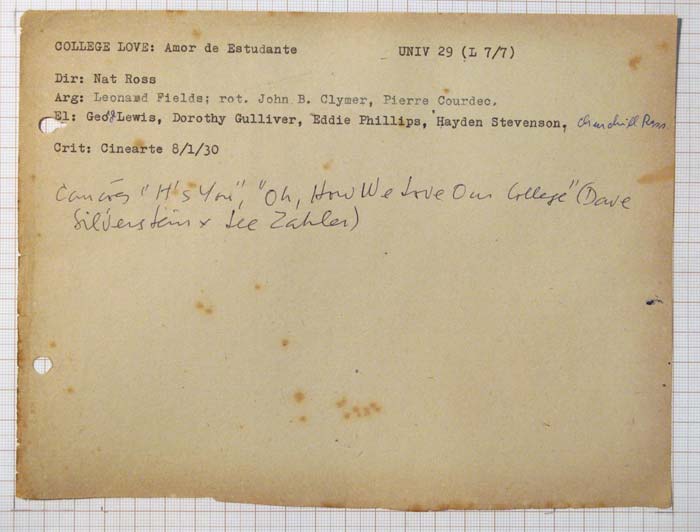 COLLEGE LOVE: Amor de Estudante UNIV 29 (L 7/7)
Dir: Nat Ross
Arg: Leonard Fields; rot. John B. Clymer, Pierre Courdec.
El: Geo Lewis, Dorothy Gulliver, Eddie Phillips, Hayden Stevenson, Churchill Ross.
Crit: Cinearte 8/1/30
Canções "It's You", "Oh, How We Love Our College" (Dave
Silverstein x Lee Zahler)